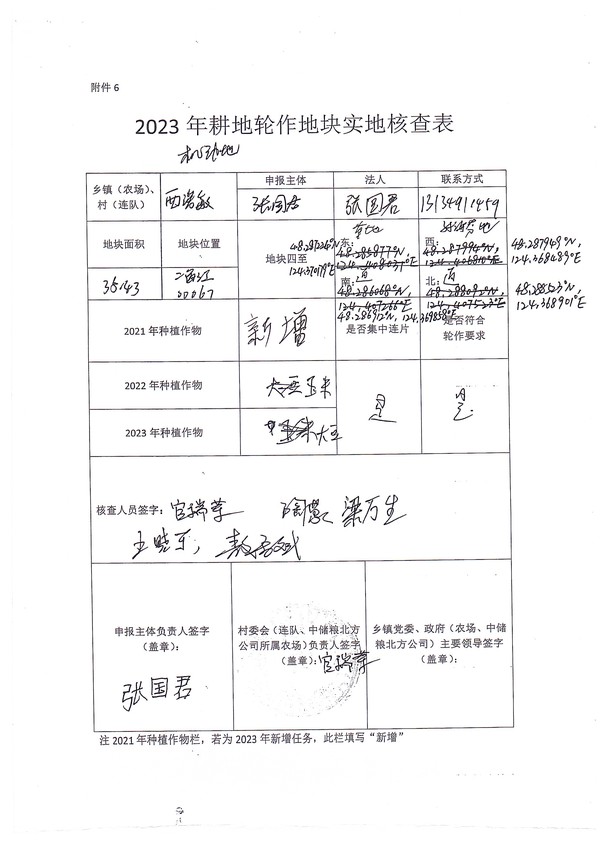 附件 6
2023 年耕地轮作地块实地核查表
机动地
乡镇（农场）、村（连队）
西诺敏
申报主体
张国君
法人
张国君
联系方式
13134911459
地块面积
地块位置
地块四至
48.287226°N
124.370179°E
东：
48.285877°N,
124.408031°E
西：
48.287994°N,
124.406810°E
48.287948°N,
124.368489°E
3643
00067
南：道
48.286068°N,
124.407266°E
48.286912°N, 124.369858°E
北：道
48.288092°N,
124.407523°E
48.288523°N,
124.368901°E
2021 年种植作物
新增
是否集中连片
是否符合轮作要求
2022 年种植作物
大豆 玉米
是
是
2023 年种植作物
玉米 大豆
核查人员签字：官瑞苹 陶慧 梁万生
王晓东，
申报主体负责人签字（盖章）：
张国君
村委会（连队、中储粮北方公司所属农场）负责人签字（盖章）：官瑞苹
乡镇党委、政府（农场、中储粮北方公司）主要领导签字（盖章）：
注 2021 年种植作物栏，若为 2023 年新增任务，此栏填写“新增”